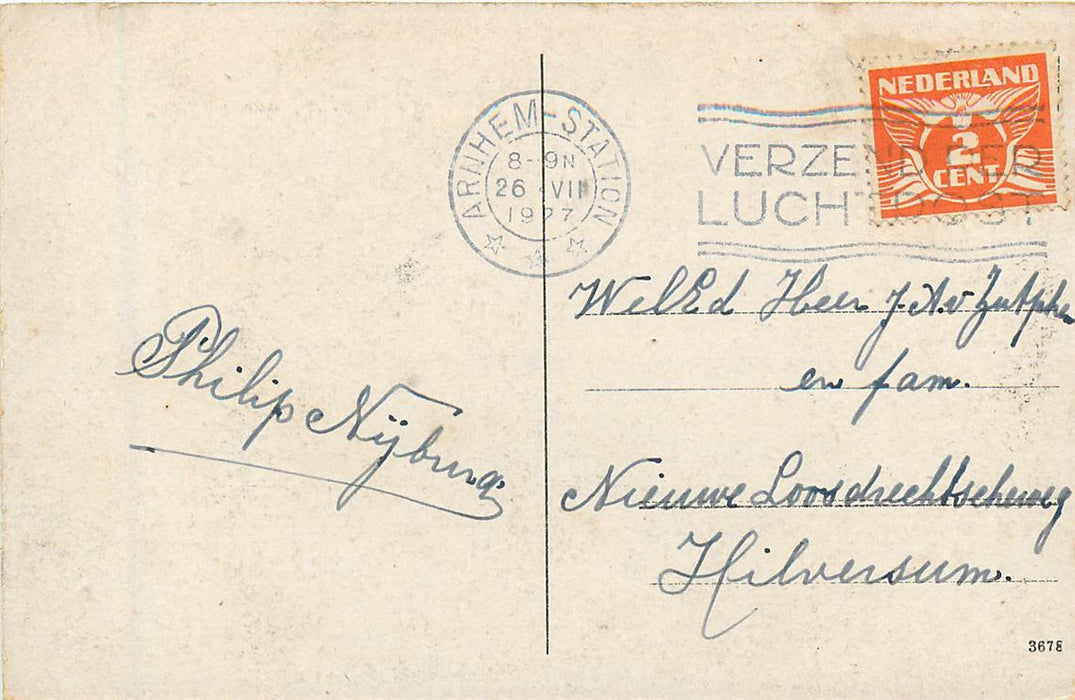 NEDERLAND
2
CENT
ARNHEM-STATION
8-9N
26 VII
VERZEND PER
LUCHTPOST
Philip Nijburg.
WelEd Heer J. A. v Zutphen
en fam.
Nieuwe Loosdrechtscheweg
Hilversum.
3678